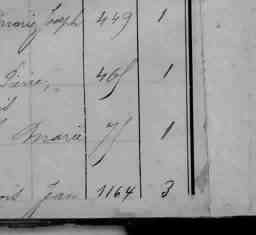 Joseph 449 1
Pierre, 465 1
Marie 75 1
Jean 1164 3